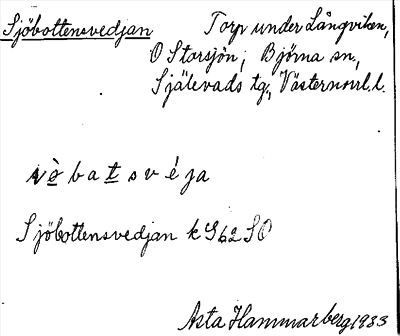 Sjöbottensvedjan Torp under Långviken,
O Storsjön; Björna sn,
Själevads tg, Västernorrl. l.
b a t s v é j a
Sjöbottensvedjan k G b2 SO
Asta Hammarberg 1933